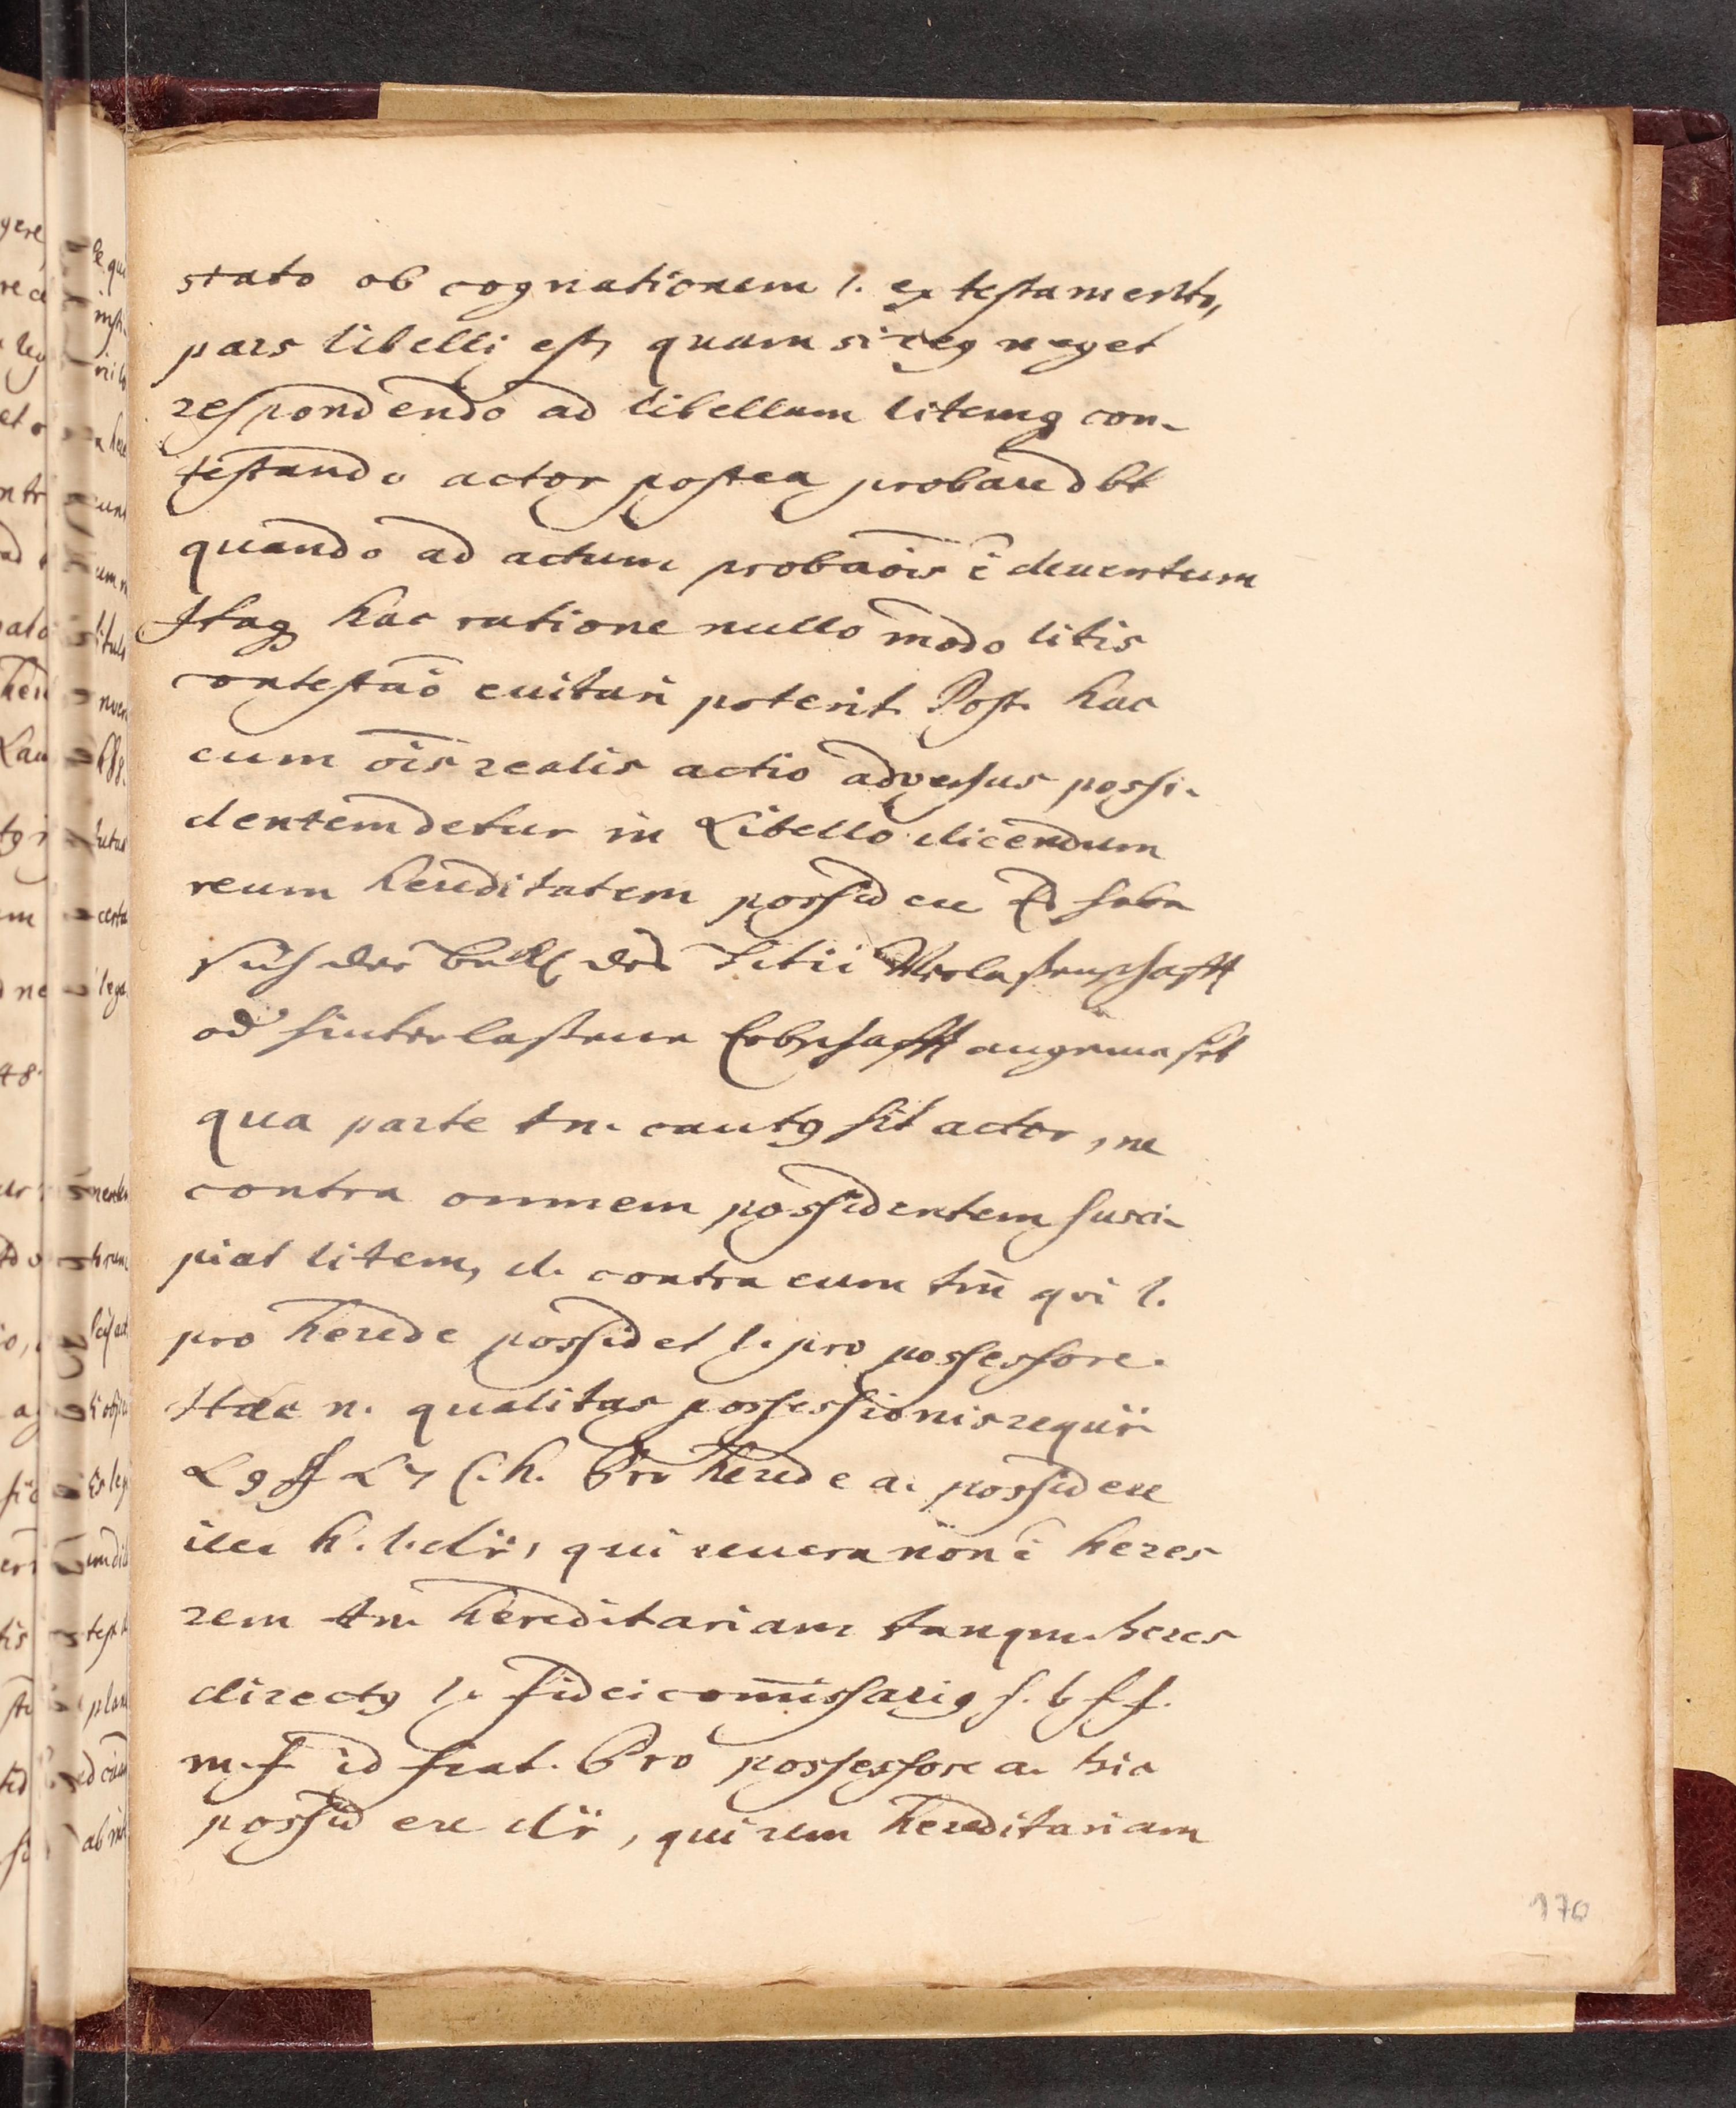 stato ob cognationem l. ex testamento,
pars libelli est, quam si reus neget
respondendo ad libellum litemq con-
testando actor postea probare dbt
quando ad actum probaōis ē deuentum
Itaq hac ratione nullo modo litis
contestaō euitari poterit. Post hac
cum ōis realis actio adversus possi-
dentem detur in Libello dicendum
reum hereditatem possidere Es habe
sich der Bekl. des Titii Verlaßenschafft
od' hinterlaßenen Erbschafft angemaßet
qua parte tn. cautq sit actor, ne
contra omnem possidentem susci-
piat litem, sd. contra eum tm̄ qvi l.
pro herede possidet l. pro possessore.
Haec n. qualitas possessionis requir
L 9 ff L 7 C. h. Pro herede a. possidere
ille h. l. dr, qui reuera non ē heres
rem tn. hereditariam tanqm. heres
directq l. fideicom̄issariq
id fiat. Pro possessore a. hic
possidere dr, qui rem hereditariam
170